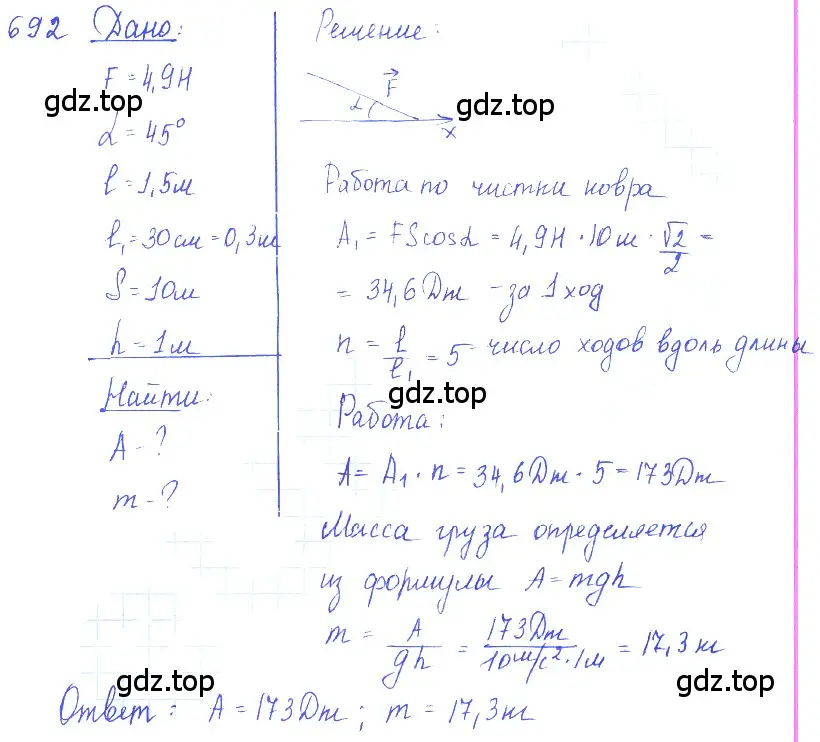 692 Дано:
F = 4,9Н
gdz.top
α = 45°
l = 1,5м
l₁ = 30см = 0,3м
S = 10м
h = 1м
Найти:
A - ?
m - ?
Решение:
α F⃗
gdz.top
x
Работа по чистки ковра
A₁ = FScosα = 4,9Н · 10м · √2/2 =
= 34,6Дж - за 1 ход
n = l/l₁ = 5 - число ходов вдоль длины
gdz.top
Работа:
A = A₁ · n = 34,6Дж · 5 = 173Дж
Масса груза определяется
из формулы A = mgh
m = A/gh = 173Дж/10м/с² · 1м = 17,3 кг
gdz.top
Ответ: A = 173Дж; m = 17,3кг